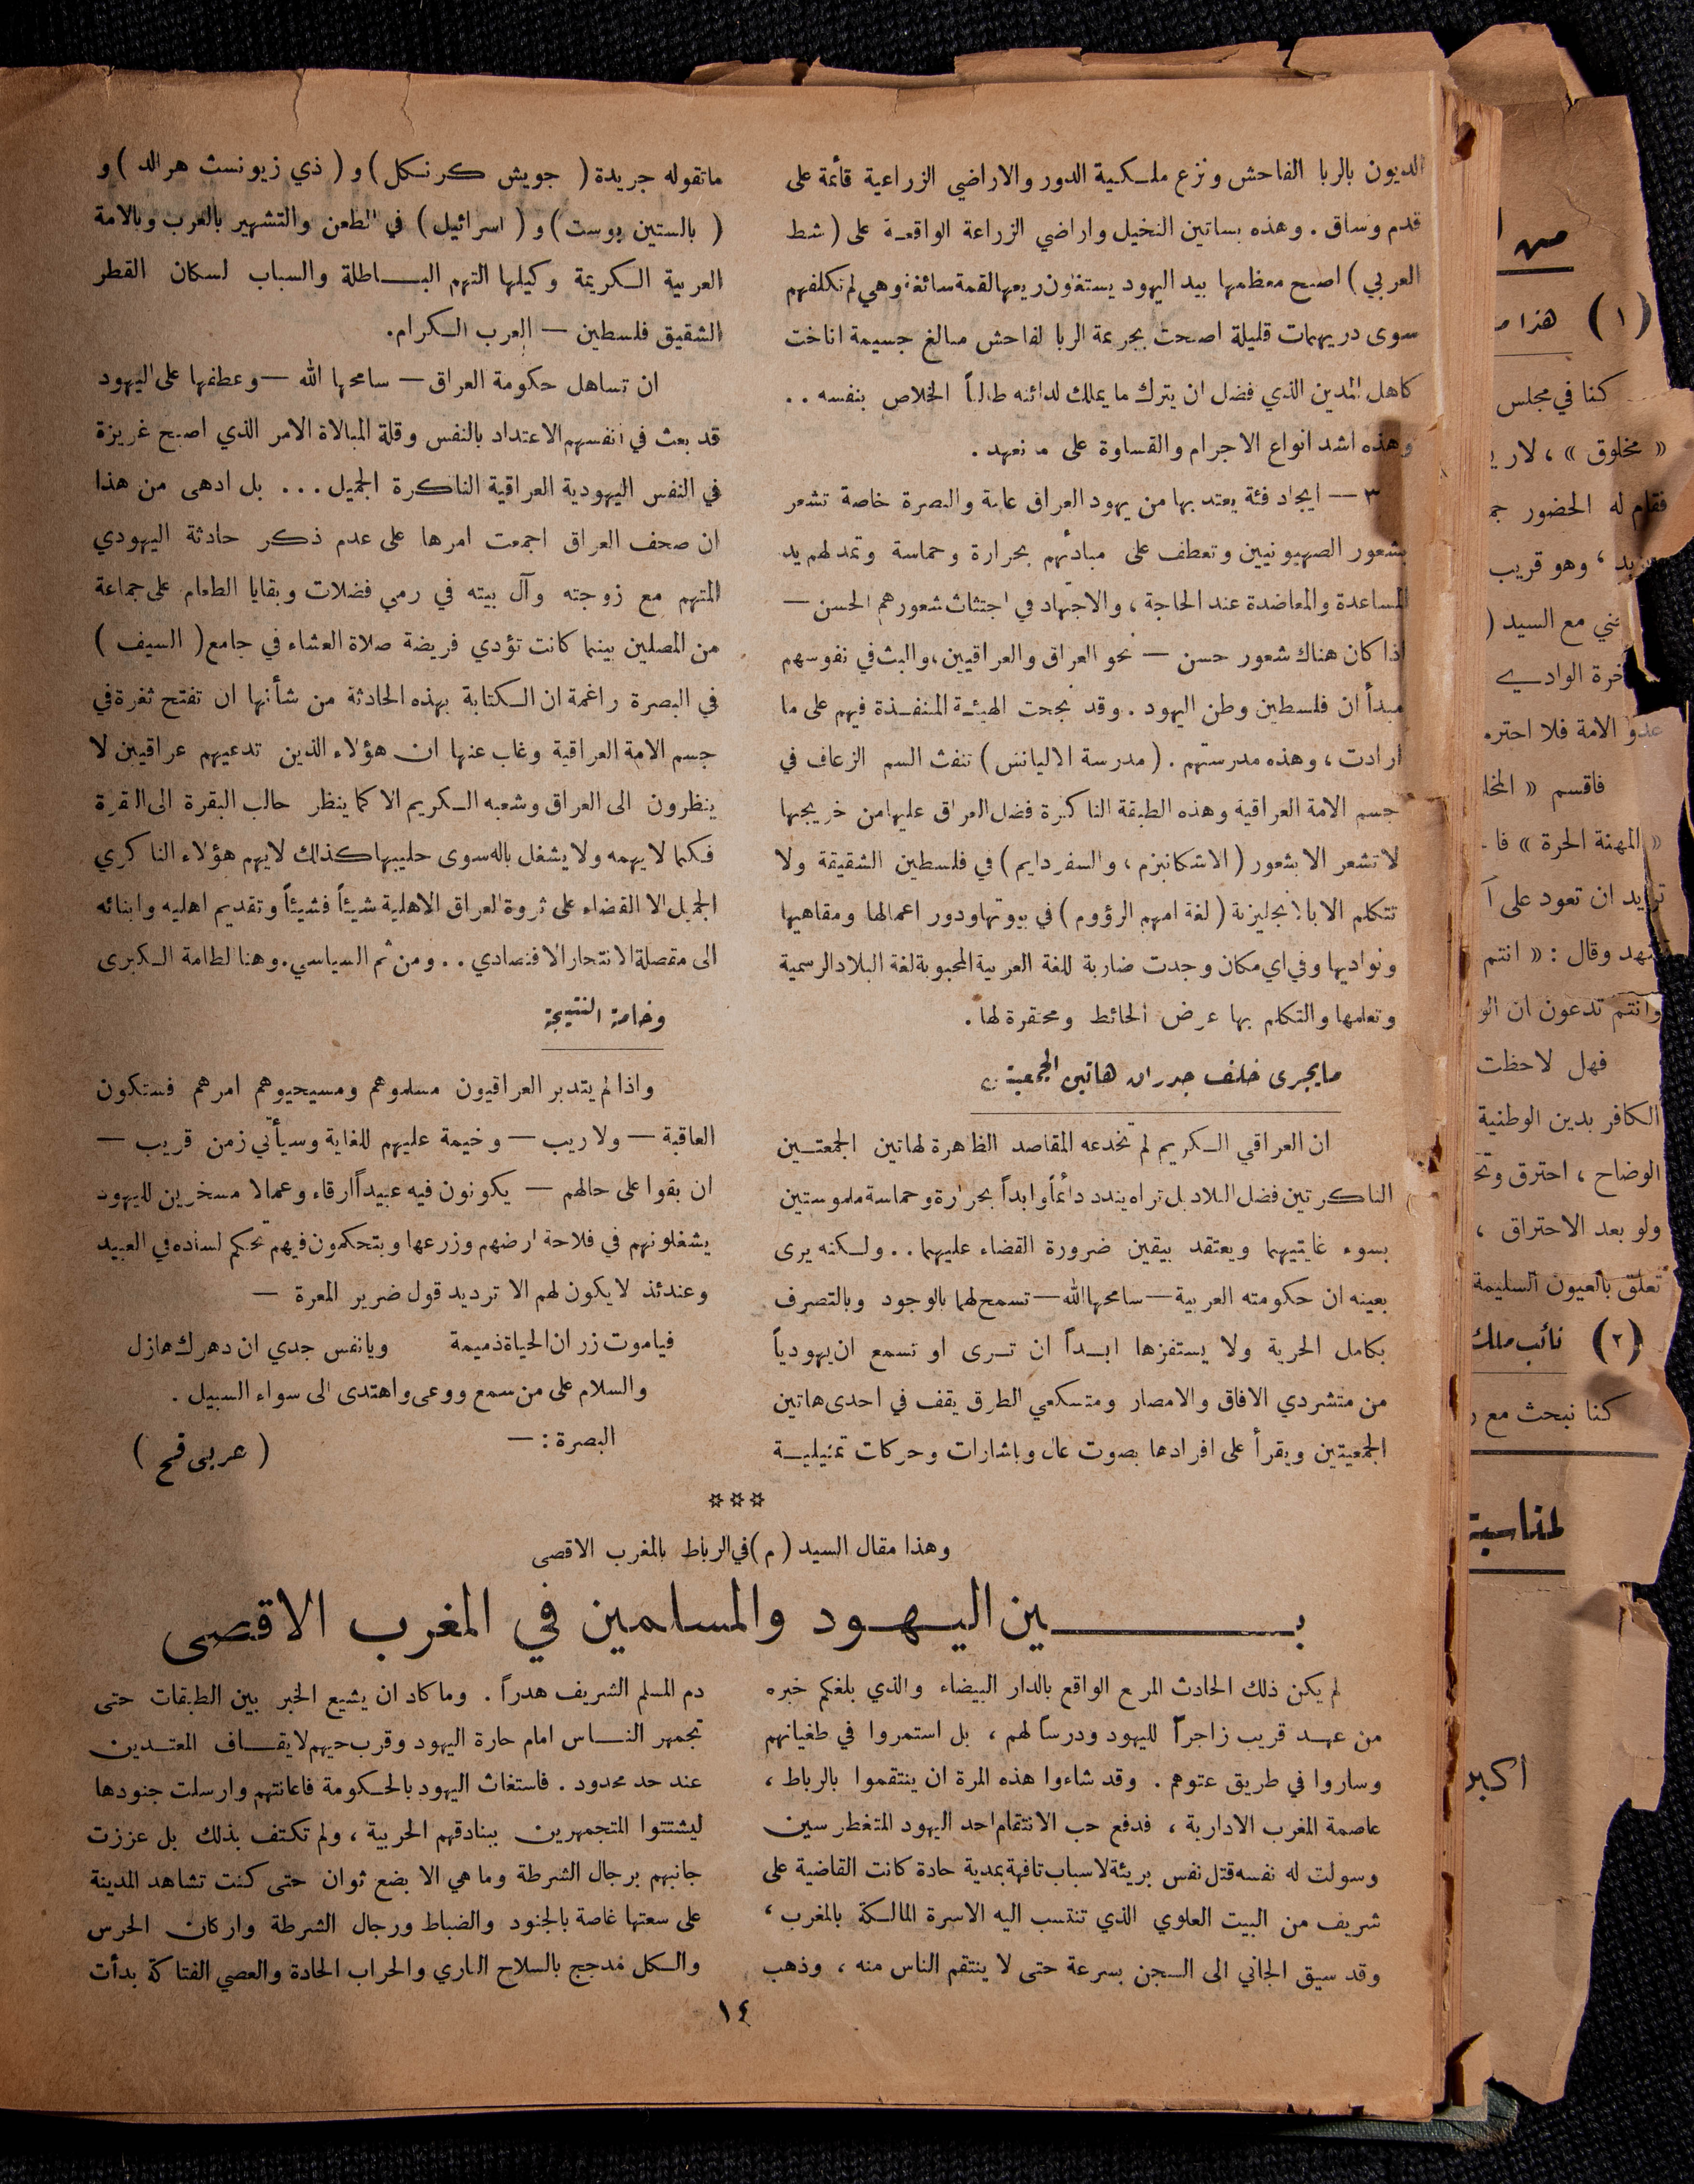 الديون بالربا الفاحش ونزع ملكية الدور والاراضي الزراعية قائمة على
قدم وساق . وهذه بساتين النخيل واراضي الزراعة الواقعة على (شط
العربي) اصبح معظمها بيد اليهود يستغلون ريعها لقمة سائغة وهي لم تكلفهم
سوى دريهمات قليلة اصبحت بجريمة الربا الفاحش مبالغ جسيمة اناخت
كاهل المدين الذي فضل ان يترك ما يملك لدائنه طالباً الخلاص بنفسه . .
وهذه اشد انواع الاجرام والقساوة على ما نعهد .
٣ — ايجاد فئة يعتد بها من يهود العراق عامة والبصرة خاصة تشعر
بشعور الصهيونيين وتعطف على مبادئهم بحرارة وحماسة وتمد لهم يد
المساعدة والمعاضدة عند الحاجة ، والاجتهاد في اجتثاث شعورهم الحسن —
اذا كان هناك شعور حسن — نحو العراق والعراقيين ، والبث في نفوسهم
مبدأ ان فلسطين وطن اليهود . وقد نجحت الهيئة المنفذة فيهم على ما
ارادت ، وهذه مدرستهم . (مدرسة الاليانس) تنفث السم الزعاف في
جسم الامة العراقية وهذه الطبقة الناكرة فضل العراق عليها من خريجيها
لا تشعر الا بشعور (الاشكانيزم ، والسفردايم) في فلسطين الشقيقة ولا
تتكلم الا بالانجليزية (لغة امهم الرؤوم) في بيوتها ودور اعمالها ومقاهيها
ونواديها وفي اي مكان وجدت ضاربة للغة العربية المحبوبة لغة البلاد الرسمية
وتعلمها والتكلم بها عرض الحائط ومحتقرة لها .
ما يجرى خلف جدران هاتين الجمعيتين
ان العراقي الكريم لم تخدعه المقاصد الظاهرة لهاتين الجمعتين
الناكرتين فضل البلاد بل تراه يندد دائماً وابداً بحرارة وحماسة ملموستين
بسوء غايتيهما ويعتقد بيقين ضرورة القضاء عليهما . . ولكنه يرى
بعينه ان حكومته العربية — سامحها الله — تسمح لهما بالوجود وبالتصرف
بكامل الحرية ولا يستفزها ابداً ان ترى او تسمع ان يهودياً
من متشردي الافاق والامصار ومتسكعي الطرق يقف في احدى هاتين
الجمعيتين ويقرأ على افرادها بصوت عال وباشارات وحركات تمثيلية
ما تقوله جريدة ( جويش كرنكل ) و ( ذي زيونست هرالد ) و
( بالستين بوست ) و ( اسرائيل ) في الطعن والتشهير بالعرب وبالامة
العربية الكريمة وكيلها التهم الباطلة والسباب لسكان القطر
الشقيق فلسطين — العرب الكرام.
ان تساهل حكومة العراق — سامحها الله — وعطفها على اليهود
قد بعث في انفسهم الاعتداد بالنفس وقلة المبالاة الامر الذي اصبح غريزة
في النفس اليهودية العراقية الناكرة الجميل . . . بل ادهى من هذا
ان صحف العراق اجمعت امرها على عدم ذكر حادثة اليهودي
المتهم مع زوجته وآل بيته في رمي فضلات وبقايا الطعام على جماعة
من المصلين بينما كانت تؤدي فريضة صلاة العشاء في جامع ( السيف )
في البصرة راغمة ان الكتابة بهذه الحادثة من شأنها ان تفتح ثغرة في
جسم الامة العراقية وغاب عنها ان هؤلاء الذين تدعيهم عراقيين لا
ينظرون الى العراق وشعبه الكريم الا كما ينظر حالب البقرة الى البقرة
فكما لا يهمه ولا يشغل باله سوى حليبها كذلك لا يهم هؤلاء الناكري
الجميل الا القضاء على ثروة العراق الاهلية شيئاً فشيئاً وتقديم اهليه وابنائه
الى مقصلة الانتحار الاقتصادي . . ومن ثم السياسي . وهنا الطامة الكبرى
وخامة النتيجة
واذا لم يتدبر العراقيون مسلموهم ومسيحيوهم امرهم فستكون
العاقبة — ولا ريب — وخيمة عليهم للغاية وسيأتي زمن قريب —
ان بقوا على حالهم — يكونون فيه عبيداً ارقاء وعمالا مسخرين لليهود
يشغلونهم في فلاحة ارضهم وزرعها ويتحكمون فيهم تحكم لساده في العبيد
وعندئذ لا يكون لهم الا ترديد قول ضرير المعرة —
فياموت زر ان الحياة ذميمة ويانفس جدي ان دهرك هازل
والسلام على من سمع ووعى واهتدى الى سواء السبيل .
البصرة : — ( عربى قح )
***
وهذا مقال السيد ( م ) في الرباط بالمغرب الاقصى
بين اليهود والمسلمين في المغرب الاقصى
لم يكن ذلك الحادث المريع الواقع بالدار البيضاء والذي بلغكم خبره
من عهد قريب زاجراً لليهود ودرساً لهم ، بل استمروا في طغيانهم
وساروا في طريق عتوهم . وقد شاءوا هذه المرة ان ينتقموا بالرباط ،
عاصمة المغرب الادارية ، فدفع حب الانتقام احد اليهود المتغطرسين
وسولت له نفسه قتل نفس بريئة لاسباب تافهة بمدية حادة كانت القاضية على
شريف من البيت العلوي الذي تنتسب اليه الاسرة المالكة بالمغرب ،
وقد سيق الجاني الى السجن بسرعة حتى لا ينتقم الناس منه ، وذهب
دم المسلم الشريف هدراً . وما كاد ان يشيع الخبر بين الطبقات حتى
تجمهر الناس امام حارة اليهود وقرب حيهم لايقاف المعتدين
عند حد محدود . فاستغاث اليهود بالحكومة فاعانتهم وارسلت جنودها
ليشتتوا المتجمهرين ببنادقهم الحربية ، ولم تكتف بذلك بل عززت
جانبهم برجال الشرطة وما هي الا بضع ثوان حتى كنت تشاهد المدينة
على سعتها غاصة بالجنود والضباط ورجال الشرطة واركان الحرس
والكل مدجج بالسلاح الناري والحراب الحادة والعصي الفتاكة بدأت
١٤
من
(١) هذا
كنا في مجلس
« مخلوق » ، لا
فقام له الحضور
وهو قريب
مع السيد (
الوادي
عدو الامة فلا
فاقسم «
« المهنة الحرة »
تريد ان تعود على
وقال : « انتم
وانتم تدعون ان
فهل لاحظت
الكافر بدين الوطنية
الوضاح ، احترق
ولو بعد الاحتراق ،
تعلق بالعيون السليمة
(٢) نائب ملك
كنا نبحث مع
لمناسبة
اكبر